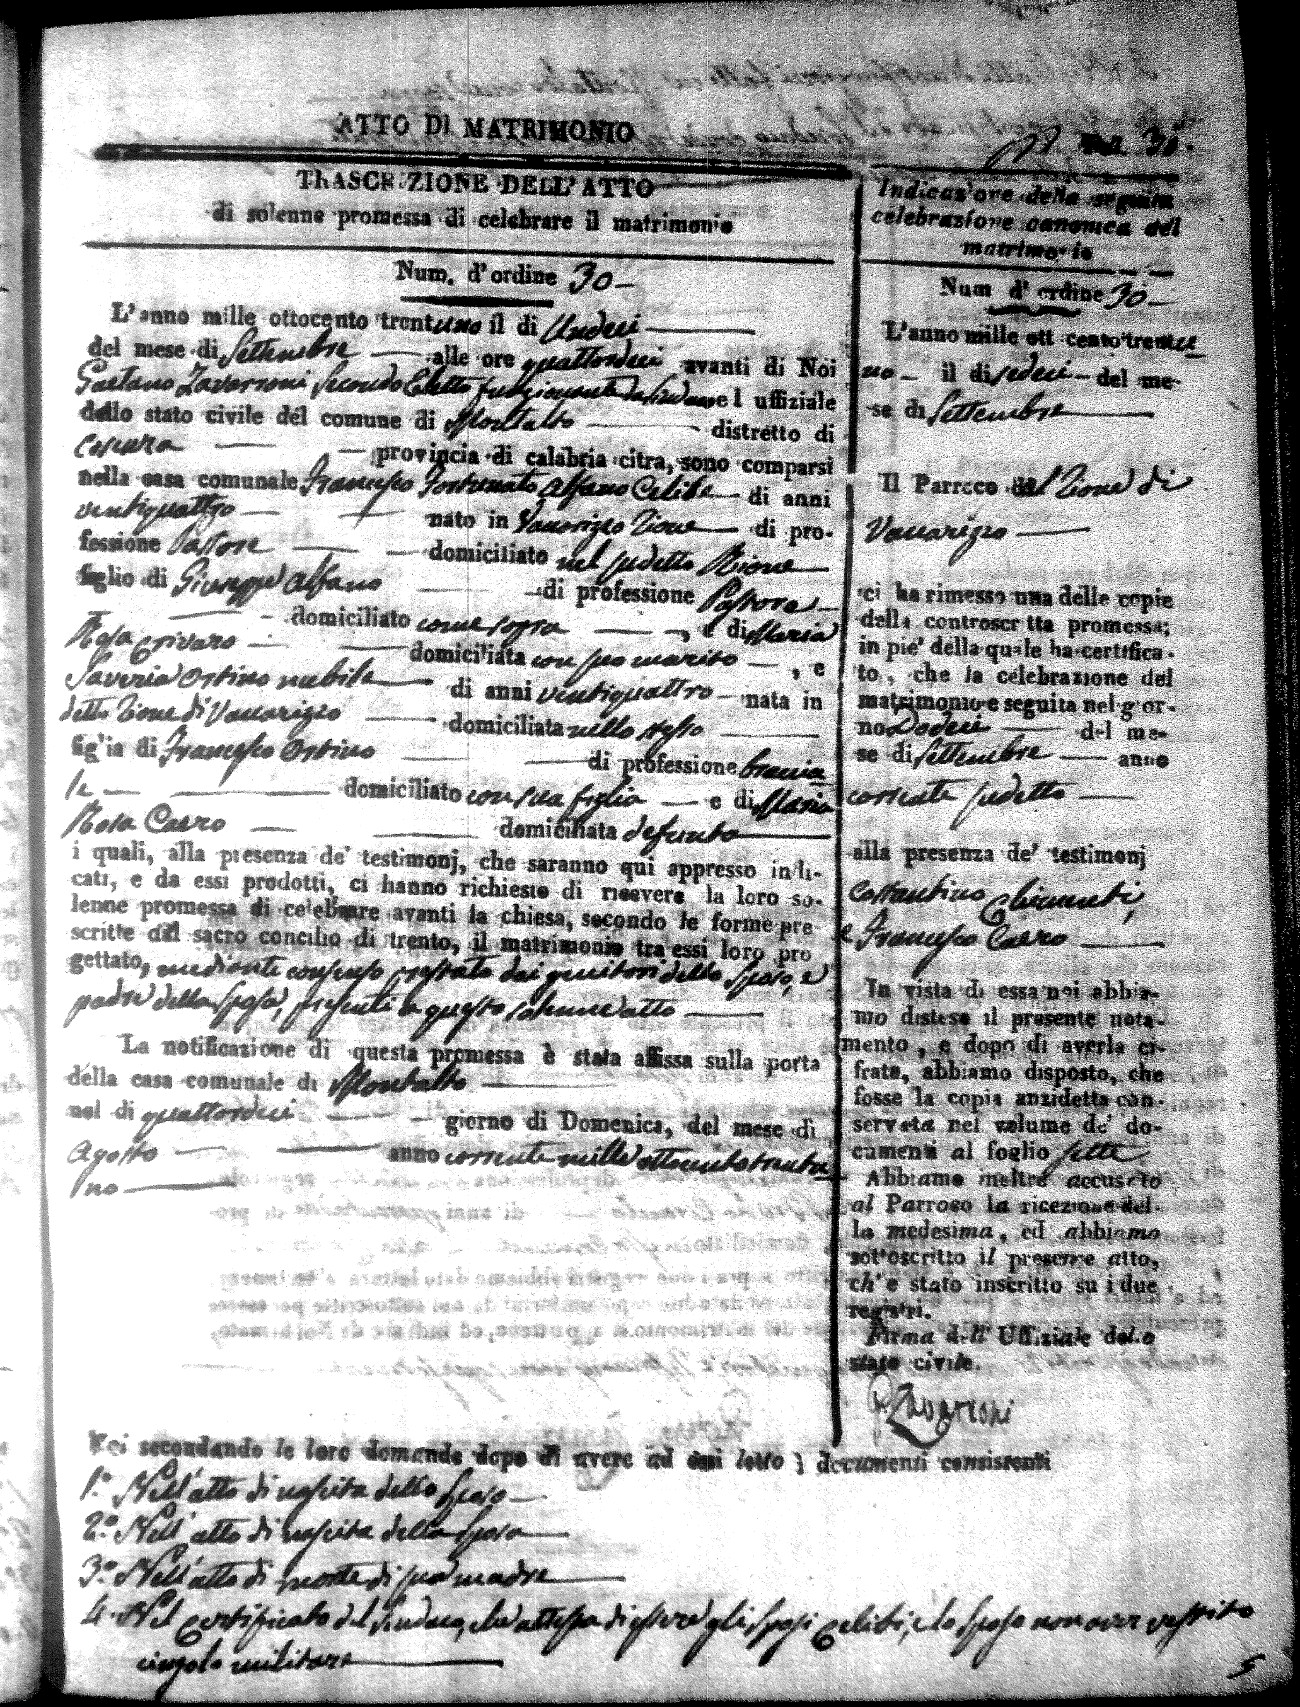 ATTO DI MATRIMONIO
30.
TRASCRIZIONE DELL'ATTO
di solenne promessa di celebrare il matrimonio
Num. d'ordine 30
L'anno mille ottocento trentuno il di Undeci
del mese di Settembre alle ore quattordeci avanti di Noi
Gaetano Zavarroni Secondo Eletto funzionante da Sindaco e l uffiziale
dello stato civile del comune di Montalto distretto di
Cosenza provincia di calabria citra, sono comparsi
nella casa comunale Francesco Fortunato Alfano Celibe di anni
ventiquattro nato in Vaccarizzo Rione di pro-
fessione Pastore domiciliato nel sudetto Rione
figlio di Giuseppe Alfano di professione Pastore
domiciliato come sopra , e di Maria
Rosa Crivaro domiciliata con suo marito , e
Saveria Ortino nubile di anni ventiquattro nata in
detto Rione di Vaccarizzo domiciliata nello stesso
figlia di Francesco Ortino di professione braccia
le domiciliato con sua figlia e di Maria
Rosa Caero domiciliata defunta
i quali, alla presenza de' testimonj, che saranno qui appresso indi-
cati, e da essi prodotti, ci hanno richiesto di ricevere la loro so-
lenne promessa di celebrare avanti la chiesa, secondo le forme pre
scritte dal sacro concilio di trento, il matrimonio tra essi loro pro
gettato, mediante consenso prestato dai genitori dello sposo, e
padre della sposa, presenti a questo solenne atto
La notificazione di questa promessa è stata affissa sulla porta
della casa comunale di Montalto
nel di quattordeci giorno di Domenica, del mese di
Agosto anno corrente mille ottocento trentu
no
Indicazione della seguita
celebrazione canonica del
matrimonio
Num d' ordine 30
L'anno mille ott cento trentu
no il di sedeci del me-
se di Settembre
Il Parroco del Rione di
Vaccarizzo
ci ha rimesso una delle copie
della controscritta promessa;
in pie' della quale ha certifica-
to, che la celebrazione del
matrimonio e seguita nel gior-
no Dodeci del me-
se di Settembre anno
corrente sudetto
alla presenza de' testimonj
Costantino Chimenti,
e Francesco Caero
In vista di essa noi abbia-
mo disteso il presente nota-
mento, e dopo di averla ci-
frata, abbiamo disposto, che
fosse la copia anzidetta con-
servata nel volume de' do-
cumenti al foglio sette
Abbiamo inoltre accusato
al Parroco la ricezione del-
la medesima, ed abbiamo
sottoscritto il presente atto,
ch'è stato inscritto su i due
registri.
Firma dell' Uffiziale dello
stato civile.
Zavarroni
Noi secondando le loro domande dopo di avere ad essi letto i documenti consistenti
1.º Nell'atto di nascita dello sposo
2.º Nell'atto di nascita della sposa
3.º Nell'atto di morte di sua madre
4. Nel Certificato del Sindaco, che attesta di essere gli sposi Celibi, e lo sposo non aver vestito
cingolo militare
5